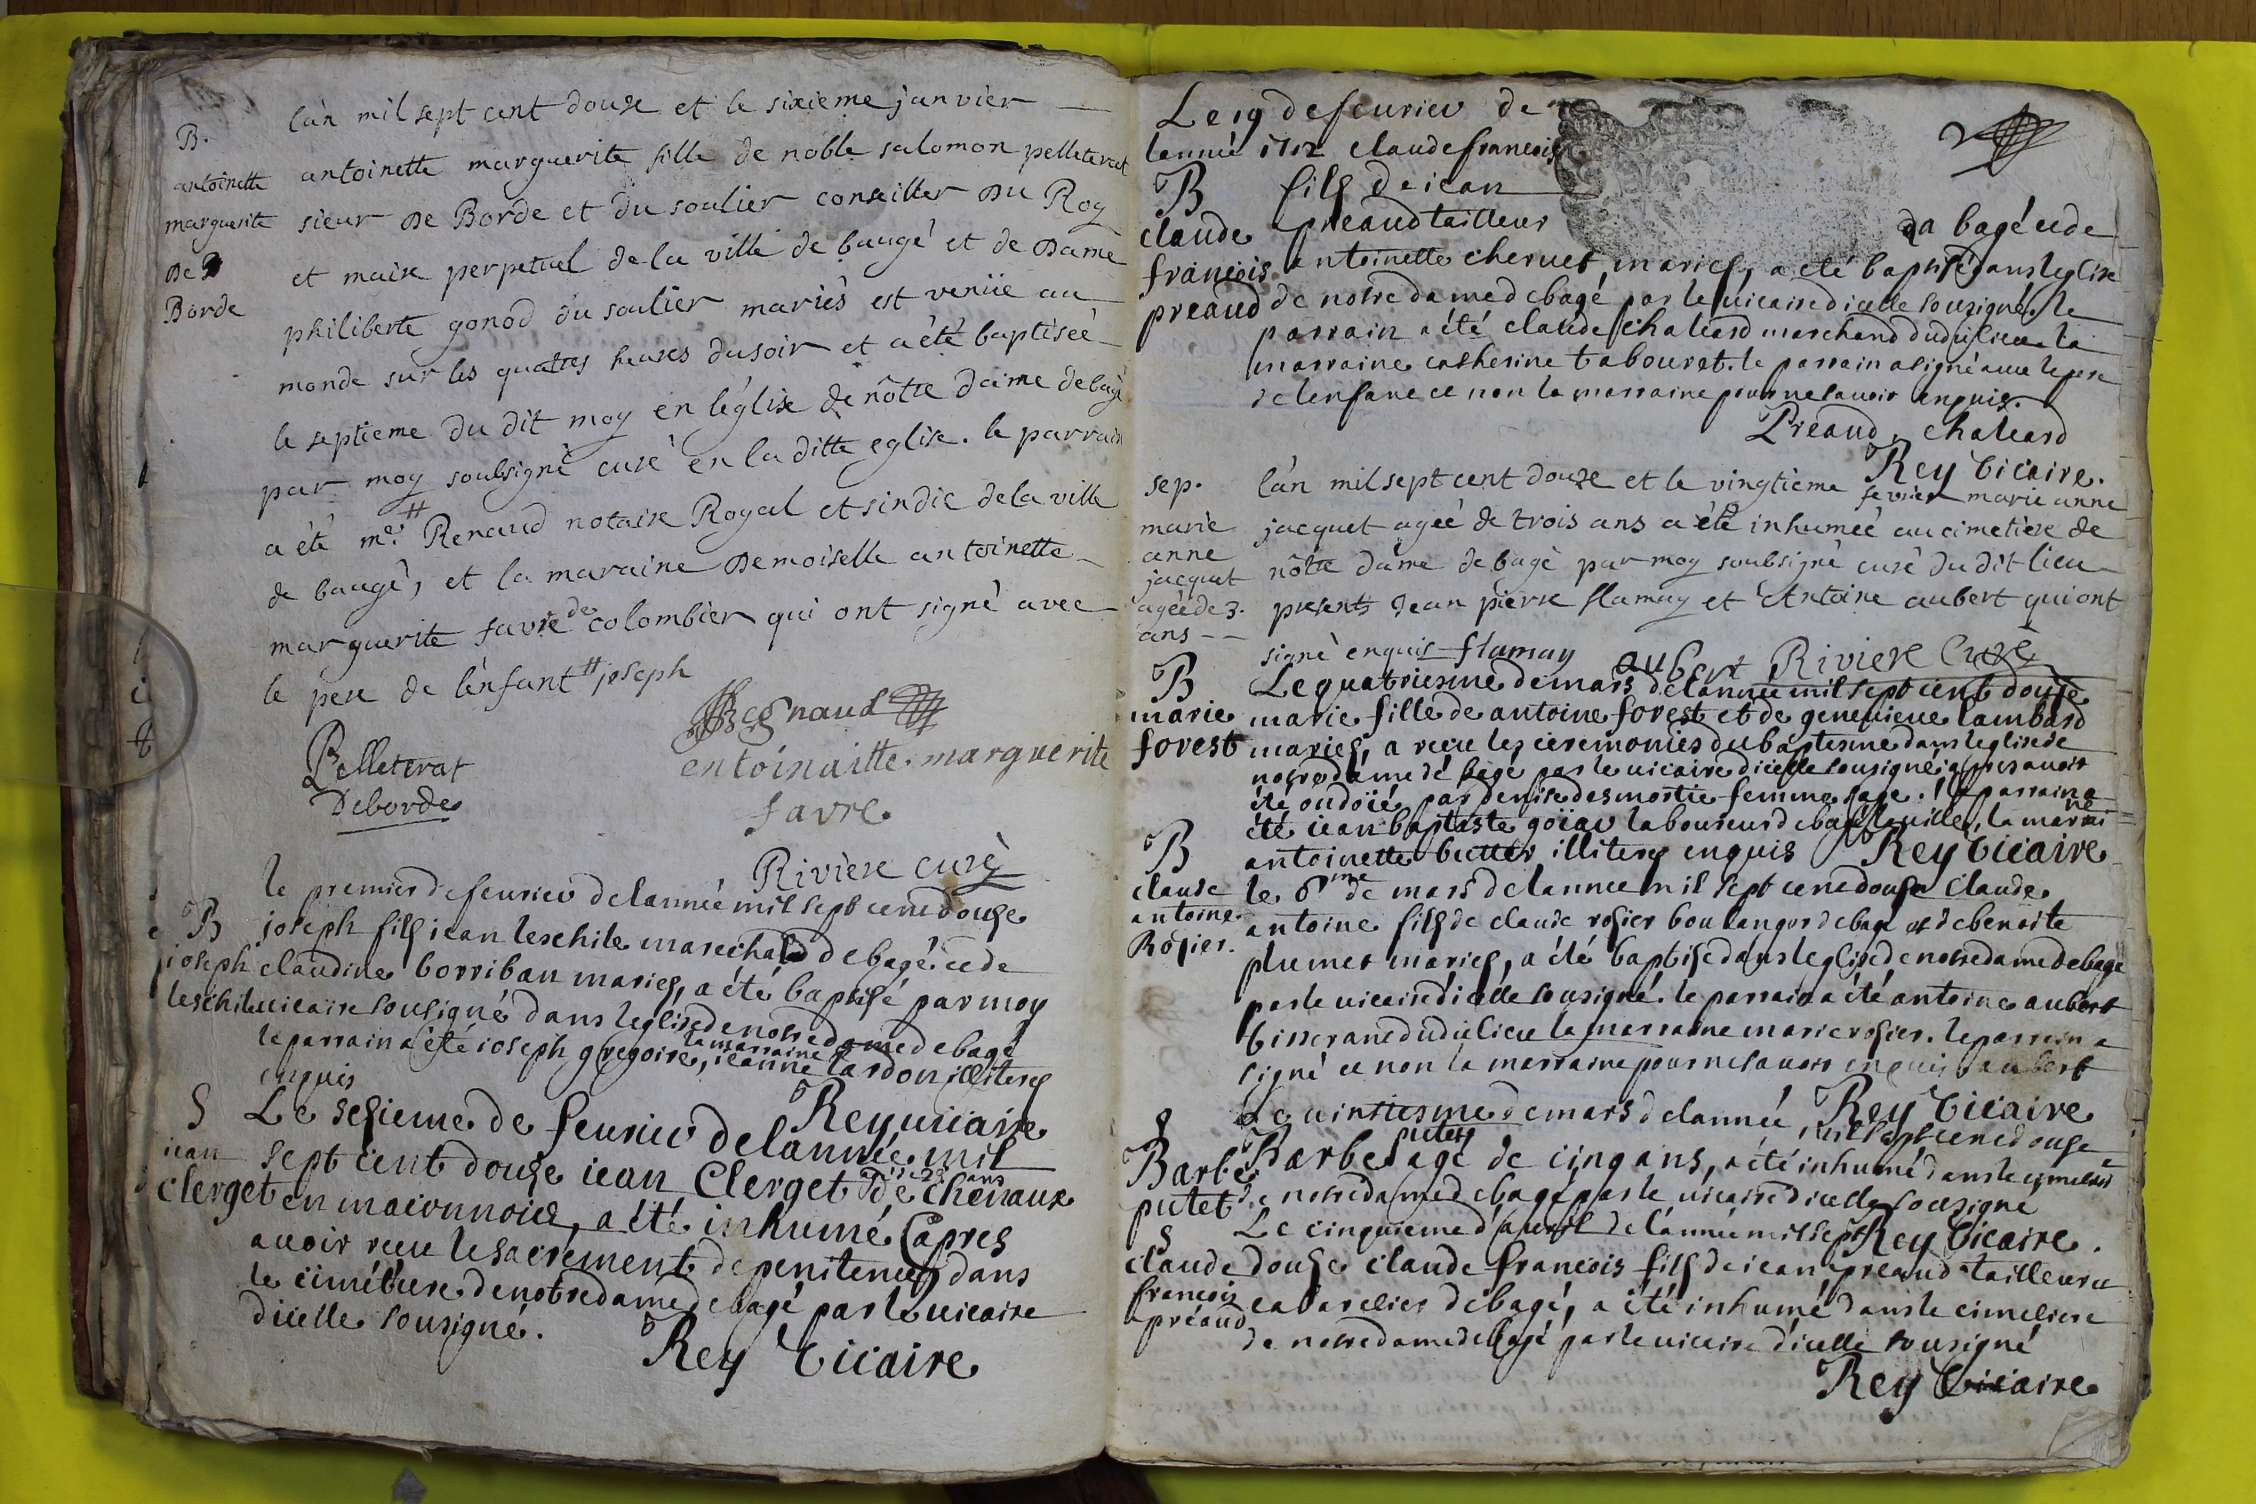 B.
antoinette
marguerite
De
Borde
lân mil sept cent douze et le sixieme janvier
antoinette marguerite fille de noble salomon pelleterat
sieur De Borde et du soulier conseiller Du Roy
et maire perpetuel de la ville de baugé et de Dame
philiberte gonod du soulier mariés est venüe au
monde sur les quattres heures du soir et a été baptiseé
le septieme du dit moy en léglise de nôtre dame de bagé
par moy soubsigné curé en la ditte eglise. le parrain
a été me. # Renaud notaire Royal et sindic de la ville
de baugé, et la maraine Demoiselle antoinette
marguerite favre de colombier qui ont signé avec
le pere de lenfant # joseph
Regnaud
Pelleterat
Deborde
entoinaitte. marguerite
favre
Riviere curé
B
joseph
leschile
le premier de feurier de lannée mil sept cent douse
joseph fils jean leschile marechal de bagé. et de
claudine borriban mariés, a été baptisé par moy
vicaire sousigné dans leglise de notre dame de bagé
le parrain a été joseph gregoire, la marraine jeanne lardon illiteres
enquis
Rey vicaire
S
jean
clerget
Le sesieme de feurier de lannée mil
sept cent douze jean Clerget de chenaux
en maconnois, a été inhumé (apres
auoir receu le sacrement de penitence) dans
le cimétiere de notre dame de bagé par le vicaire
dicelle sousigné.
Rey Vicaire
Le 19 de feurier de
lannée 1712 claude francois
B
claude
francois
preaud
fils de jean
preaud tailleur
da bagé et de
antoinette cheruet, mariés, a été baptisé dans leglise
de notre dame de bagé par le vicaire dicelle sousigné. le
parrain a été claude chaliard marchand dudit lieu la
marraine catherine tabouret. le parrain a signé auec le pere
de lenfant et non la marraine pour ne sauoir enquis.
Preaud. chaliard
Rey Vicaire.
sep.
marie
anne
jacquet
ageé de 3.
ans --
lân mil sept cent douze et le vingtieme fevrier marie anne
jacquet ageé de trois ans a été inhumeé au cimetiere de
nôtre dame de bagé par moy soubsigné curé du dit lieu
presents Jean pierre flamuy et Antoine aubert qui ont
signé enquis flamuy aubert Riviere Curé
B
marie
forest
Le quatriesme de mars de lannée mil sept cent douse
marie fille de antoine forest et de geneuieue lambard
mariés, a receu les ceremonies du baptesme dans leglise de
notre dame de bagé par le vicaire dicelle sousigné apres auoir
été ondoïé par denise desmortie femme sage. le parrain a
été jean baptiste goiau laboureur de bagé la ville, la marraine
antoinette illiteres enquis Rey Vicaire
B
claude
antoine
Rosier.
le 6me de mars de lannee mil sept cent douse claude
antoine fils de claude rosier boulanger de bagé et de benoite
plumet mariés, a été baptisé dans leglise de notre dame de bagé
par le vicaire dicelle sousigné. le parrain a été antoine aubert
tisserand dudit lieu la marraine marie rosier. le parrain a
signé et non la marraine pour ne sauoir enquis aubert
Rey Vicaire
S
Barbe
putet
Le vintiesme de mars de lannée mil sept cent douse
Barbe putet agé de cinq ans, a été inhumé dans le cimetiere
de notre dame de bagé par le vicaire dicelle sousigné
Rey Vicaire.
S
claude
francois
préaud
Le cinquieme dauril de lannée mil sept
douse claude francois fils de jean preaud tailleur et
cabaretier de bagé, a été inhumé dans le cimetiere
de notre dame de bagé par le vicaire dicelle sousigné
Rey Vicaire